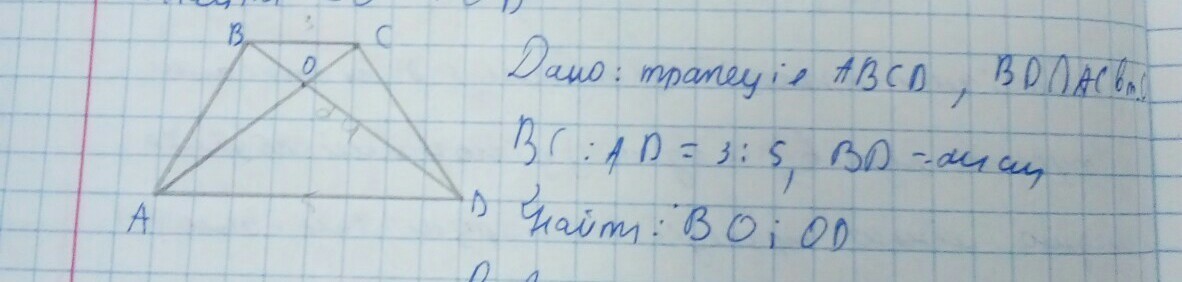 B C
O
A D
Дано: трапеція ABCD, BD∩AC в т.
BC : AD = 3 : 5, BD =
Найти: BO; OD